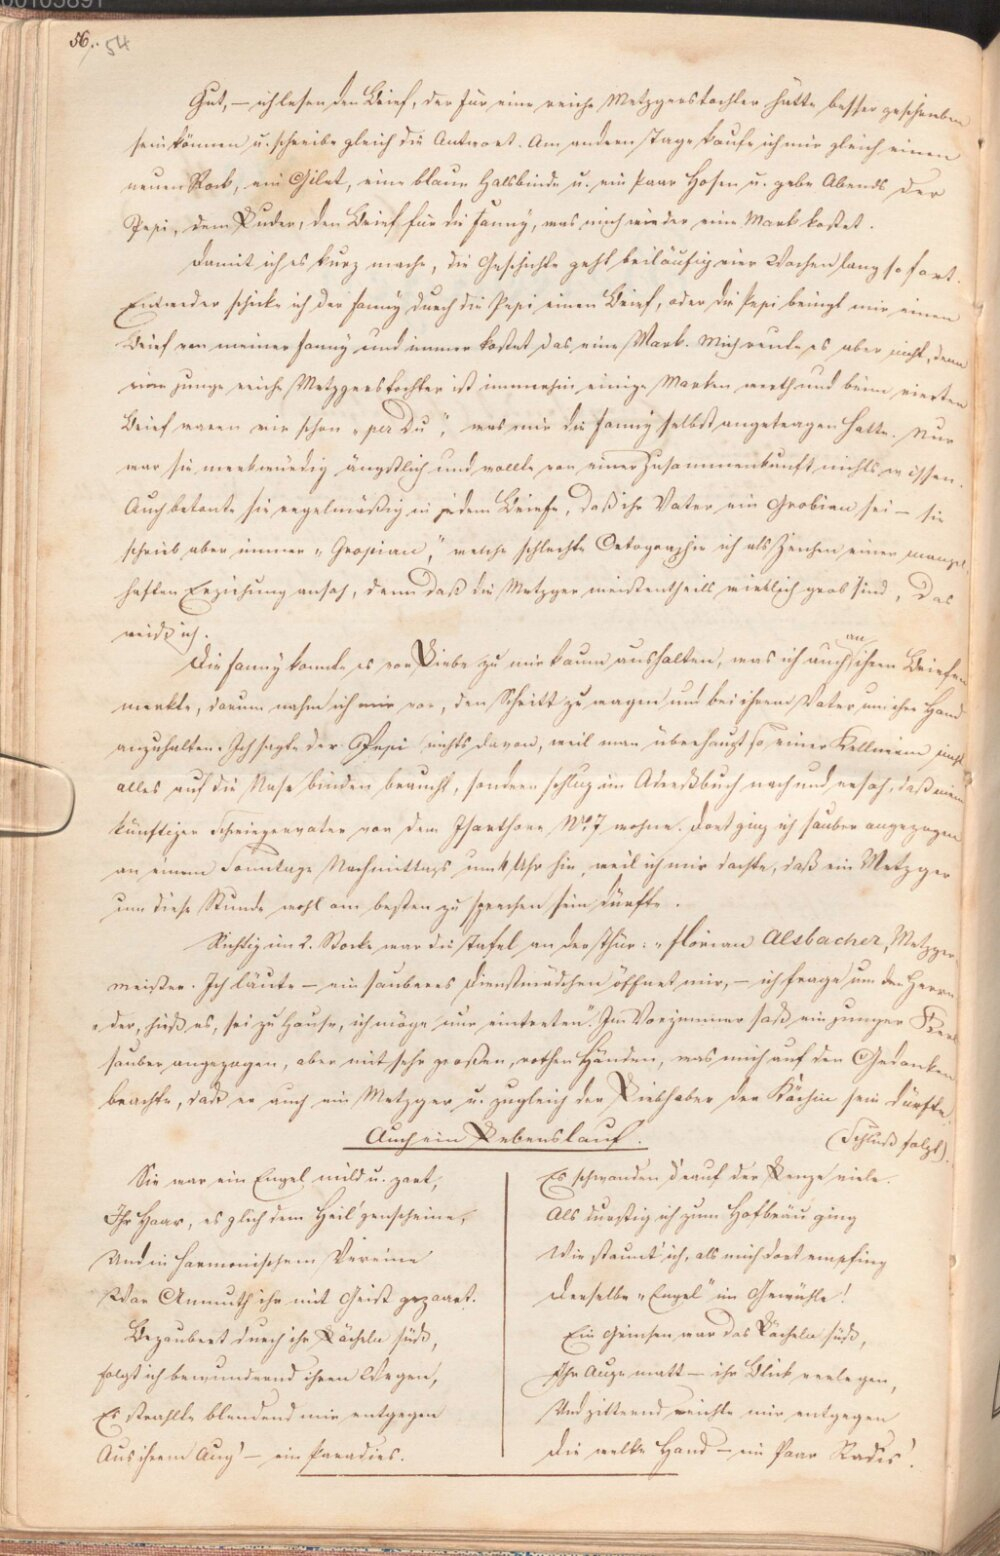 56. 54
Gut, – ich lesen den Brief, der für eine reiche Metzgerstochter hätte besser geschrieben
sein können u. schreibe gleich die Antwort. Am andern Tage kaufe ich mir gleich einen
neuen Rock, ein Gilet, eine blaue Halsbinde u. ein Paar Hosen u. gebe Abends der
Pepi, dem Luder, den Brief für die Fanny, was mich wieder eine Mark kostet.
Damit ich es kurz mache, die Geschichte geht beiläufig vier Wochen lang so fort.
Entweder schicke ich der Fanny durch die Pepi einen Brief, oder die Pepi bringt mir einen
Brief von meiner Fanny und immer kostet das eine Mark. Mich reute es aber nicht, denn
eine junge reiche Metzgerstochter ist immerhin einige Marken werth und beim vierten
Brief waren wir schon „per Du“, was mir die Fanny selbst angetragen hatte. Nur
war sie merkwürdig ängstlich und wollte von einer Zusammenkunft nichts wissen.
Auch betonte sie regelmäßig in jedem Briefe, daß ihr Vater ein Grobian sei – sie
schrieb aber immer „Gropian“, welche schlechte Ortographie ich als Zeichen einer mangel-
haften Erziehung ansah, denn daß die Metzger meistentheils wirklich grob sind, das
weiß ich.
Die Fanny konnte es vor Liebe zu mir kaum aushalten, was ich auch an ihren Briefen
merkte, darum nahm ich mir vor, den Schritt zu wagen und bei ihrem Vater um ihre Hand
anzuhalten. Ich sagte der Pepi nichts davon, weil man überhaupt so einer Kellnerin nicht
alles auf die Nase binden braucht, sondern schlug im Adreßbuch nach und ersah, daß mein
künftiger Schwiegervater vor dem Isarthore No. 7 wohne. Dort ging ich sauber angezogen
an einem Sonntage Nachmittags um 4 Uhr hin, weil ich mir dachte, daß ein Metzger
um diese Stunde wohl am besten zu sprechen sein dürfte.
Richtig im 2. Stocke war die Tafel an der Thür: „Florian Alsbacher, Metzger-
meister. Ich läute – ein sauberes Dienstmädchen öffnet mir, – ich frage um den Herrn
„der, hieß es, sei zu Hause, ich möge nur eintreten“. Im Vorzimmer saß ein junger Kerl
sauber angezogen, aber mit sehr großen, rothen Händen, was mich auf den Gedanken
brachte, daß er auch ein Metzger u. zugleich der Liebhaber der Köchin sein dürfte.
(Schluß folgt).
Auch ein Lebenslauf.
Sie war ein Engel mild u. zart,
Ihr Haar, es glich dem Heil'genscheine,
Und in harmonischem Vereine
War Anmuth ihr mit Geist gepaart.
Bezaubert durch ihr Lächeln süß,
Folgt ich bewundernd ihren Wegen,
Es strahlte blendend mir entgegen
Aus ihrem Aug' – ein Paradies.
Es schwanden d'rauf der Lenze viele.
Als durstig ich zum Hofbräu ging
Wie staunt' ich, als mich dort empfing
Derselbe „Engel“ im Gewühle!
Ein Grinsen war das Lächeln süß,
Ihr Auge matt – ihr Blick verlegen,
Und zitternd reichte mir entgegen
Die welke Hand – ein Paar Radis!